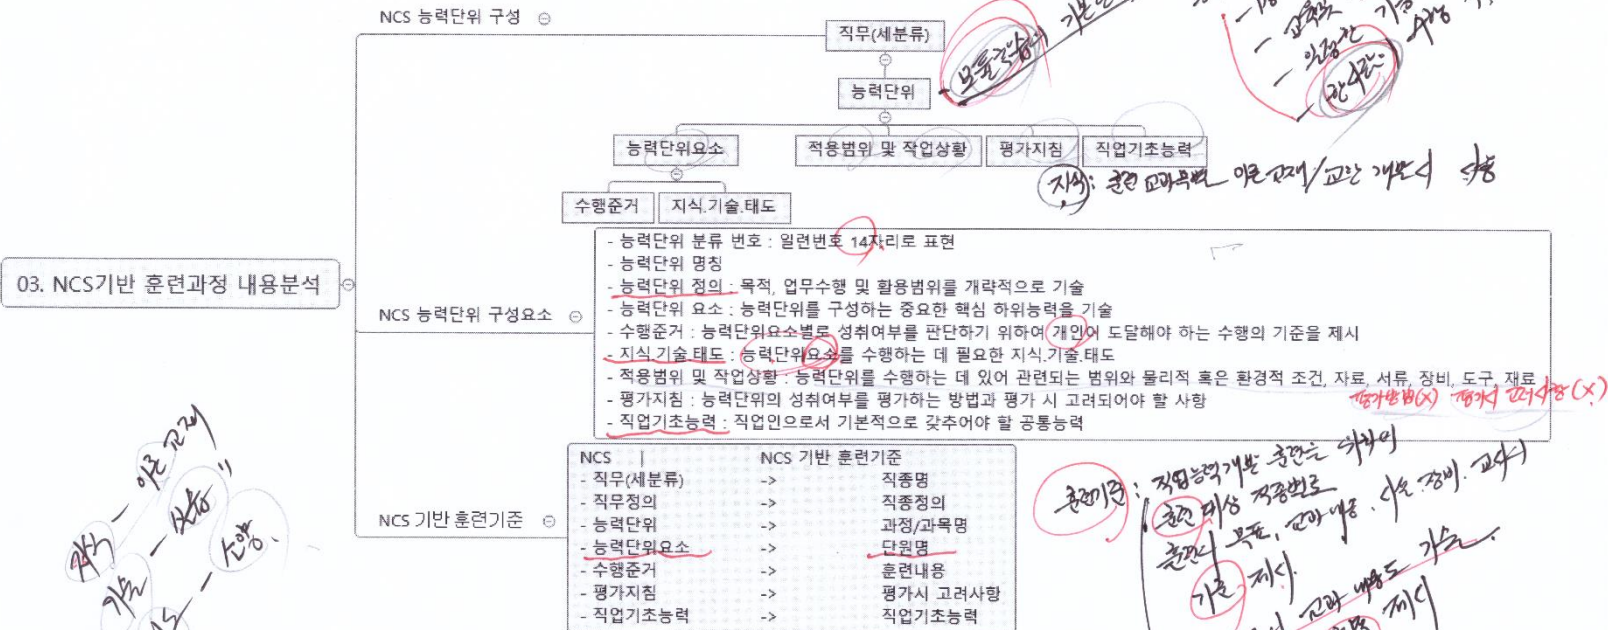 NCS 능력단위 구성
직무(세분류)
능력단위
능력단위요소
적용범위 및 작업상황
평가지침
직업기초능력
수행준거
지식.기술.태도
03. NCS기반 훈련과정 내용분석
NCS 능력단위 구성요소
- 능력단위 분류 번호 : 일련번호 14자리로 표현
- 능력단위 명칭
- 능력단위 정의 : 목적, 업무수행 및 활용범위를 개략적으로 기술
- 능력단위 요소 : 능력단위를 구성하는 중요한 핵심 하위능력을 기술
- 수행준거 : 능력단위요소별로 성취여부를 판단하기 위하여 개인이 도달해야 하는 수행의 기준을 제시
- 지식.기술.태도 : 능력단위요소를 수행하는 데 필요한 지식.기술.태도
- 적용범위 및 작업상황 : 능력단위를 수행하는 데 있어 관련되는 범위와 물리적 혹은 환경적 조건, 자료, 서류, 장비, 도구, 재료
- 평가지침 : 능력단위의 성취여부를 평가하는 방법과 평가 시 고려되어야 할 사항
평가방법(X) 평가시 고려사항(X)
- 직업기초능력 : 직업인으로서 기본적으로 갖추어야 할 공통능력
NCS 기반 훈련기준
NCS NCS 기반 훈련기준
- 직무(세분류) -> 직종명
- 직무정의 -> 직종정의
- 능력단위 -> 과정/과목명
- 능력단위요소 -> 단원명
- 수행준거 -> 훈련내용
- 평가지침 -> 평가시 고려사항
- 직업기초능력 -> 직업기초능력
지식: 훈련 교과목별 이론교재/교안 개발시 사용
훈련기준: 직업능력개발 훈련을 위하여
훈련 대상 직종별로
훈련의 목표, 교과내용, 시설.장비.교사
기준 제시
지식 - 이론 교재